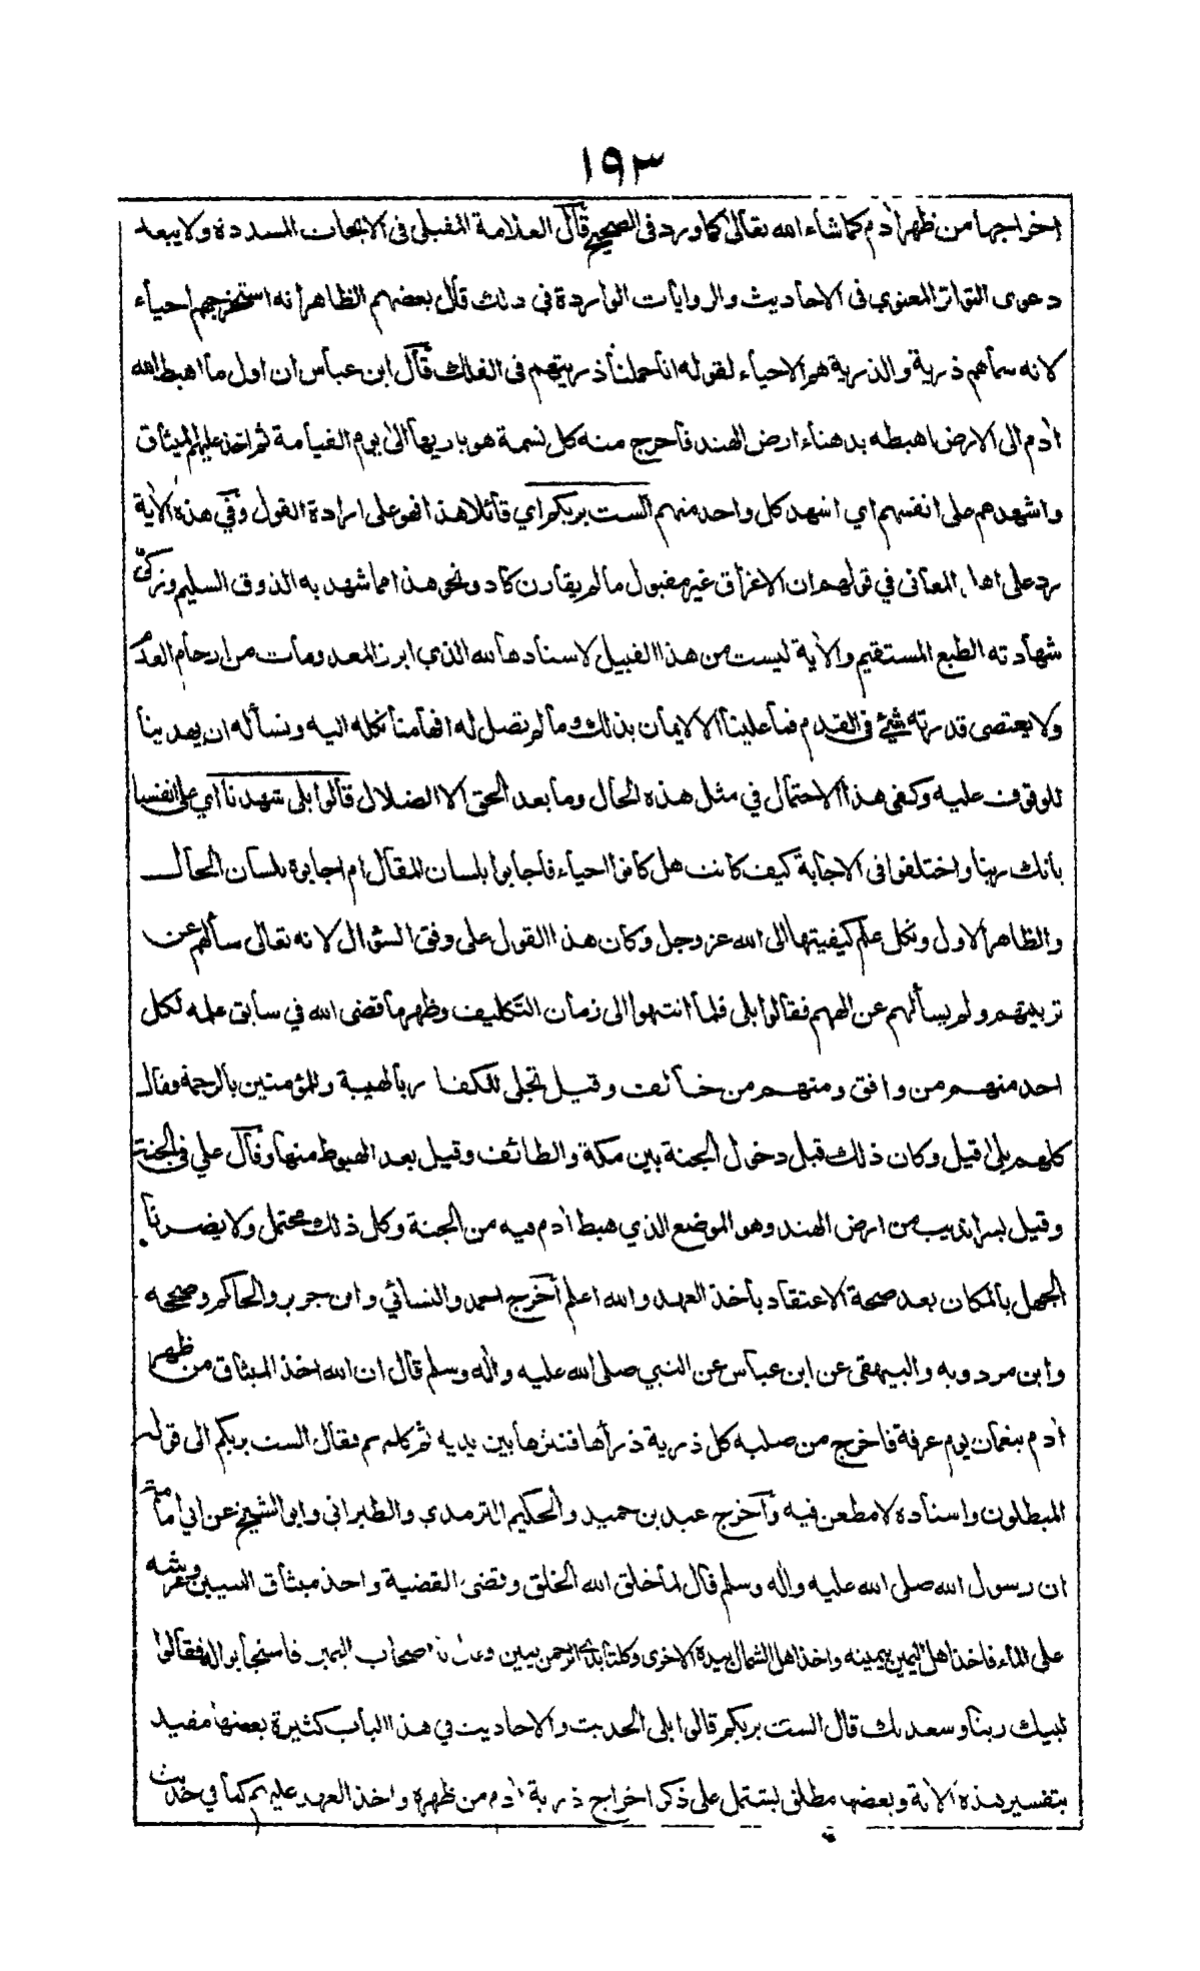 ١٩٣
اخراجها من ظهر اٰدم كما شاء الله تعالى كما ورد فى الصحيح قال العلامة المقبلى فى الابحاث المسددة ولا يبعد
دعوى التواتر المعنوي فى الاحاديث والروايات الواردة فى ذلك قال بعضهم الظاهر انه استخرجهم احياء
لانه سماهم ذرية والذرية هم الاحياء لقوله انا حملنا ذريتهم فى الفلك قال ابن عباس ان اول ما اهبط الله
اٰدم الى الارض اهبطه بدهناء ارض الهند فاخرج منه كل نسمة هو باريها الى يوم القيامة ثم اخذ عليهم الميثاق
واشهدهم على انفسهم اي اشهد كل واحد منهم الست بربكم اي قائلا هذا فهو على ارادة القول وفي هذه الاٰية
رد على اهل المعانى في قولهم ان الاغراق غير مقبول ما لم يقارن كاد ونحو هذا مما شهد به الذوق السليم وزكى
شهادته الطبع المستقيم والاٰية ليست من هذا القبيل لاسنادها لله الذي ابرز المعدومات من ارحام العدم
ولا يعتصى قدرته شيء فى القدم فما علينا الا الايمان بذلك وما لم تصل له افهامنا نكله اليه ونسأله ان يهدينا
للوقوف عليه وكفى هذا الاحتمال في مثل هذه الحال وما بعد الحق الا الضلال قالوا بلى شهدنا اي على انفسنا
بأنك ربنا واختلفوا فى الاجابة كيف كانت هل كانوا احياء فاجابوا بلسان المقال ام اجابوه بلسان الحال
والظاهر الاول ونكل علم كيفيتها الى الله عز وجل وكان هذا القول على وفق السؤال لانه تعالى سألهم عن
تربيتهم ولم يسألهم عن الههم فقالوا بلى فلما انتهوا الى زمان التكليف وظهر ما قضى الله في سابق علمه لكل
احد منهم من وافق ومنهم من خالف وقيل تجلى للكفار بالهيبة وللمؤمنين بالرحمة فقال
كلهم بلى قيل وكان ذلك قبل دخول الجنة بين مكة والطائف وقيل بعد الهبوط منها وقال علي فى الجنة
وقيل بسرانديب من ارض الهند وهو الموضع الذي هبط اٰدم فيه من الجنة وكل ذلك محتمل ولا يضرنا
الجهل بالمكان بعد صحة الاعتقاد بأخذ العهد والله اعلم أخرج احمد والنسائي وابن جرير والحاكم وصححه
وابن مردويه والبيهقى عن ابن عباس عن النبي صلى الله عليه واٰله وسلم قال ان الله اخذ الميثاق من ظهر
اٰدم بنعمان يوم عرفة فاخرج من صلبه كل ذرية ذرأها فنثرها بين يديه ثم كلمهم فقال الست بربكم الى قوله
المبطلون واسناده لا مطعن فيه وأخرج عبد بن حميد والحكيم الترمذي والطبرانى وابو الشيخ عن ابي امامة
ان رسول الله صلى الله عليه واٰله وسلم قال لما خلق الله الخلق وقضى القضية واخذ ميثاق النبيين وعرشه
على الماء فاخذ اهل اليمين بيمينه واخذ اهل الشمال بيده الاخرى وكلتا يدي الرحمن يمين فقال يا اصحاب اليمين فاستجابوا له فقالوا
لبيك ربنا وسعديك قال الست بربكم قالوا بلى الحديث والاحاديث في هذا الباب كثيرة بعضها مفيد
بتفسير هذه الاٰية وبعضها مطلق يشتمل على ذكر اخراج ذرية اٰدم من ظهره واخذ العهد عليهم كما في حديث